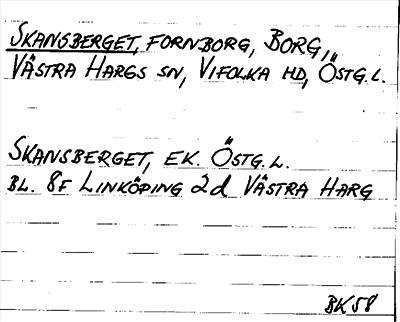 SKANSBERGET, FORNBORG, BORG,
VÄSTRA HARGS SN, VIFOLKA HD, ÖSTG.L.
SKANSBERGET, EK. ÖSTG.L.
BL. 8F LINKÖPING 2d VÄSTRA HARG
BK58